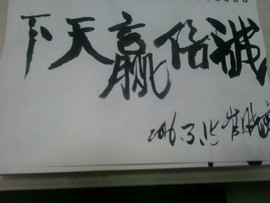 诚信赢天下
2016.3.15